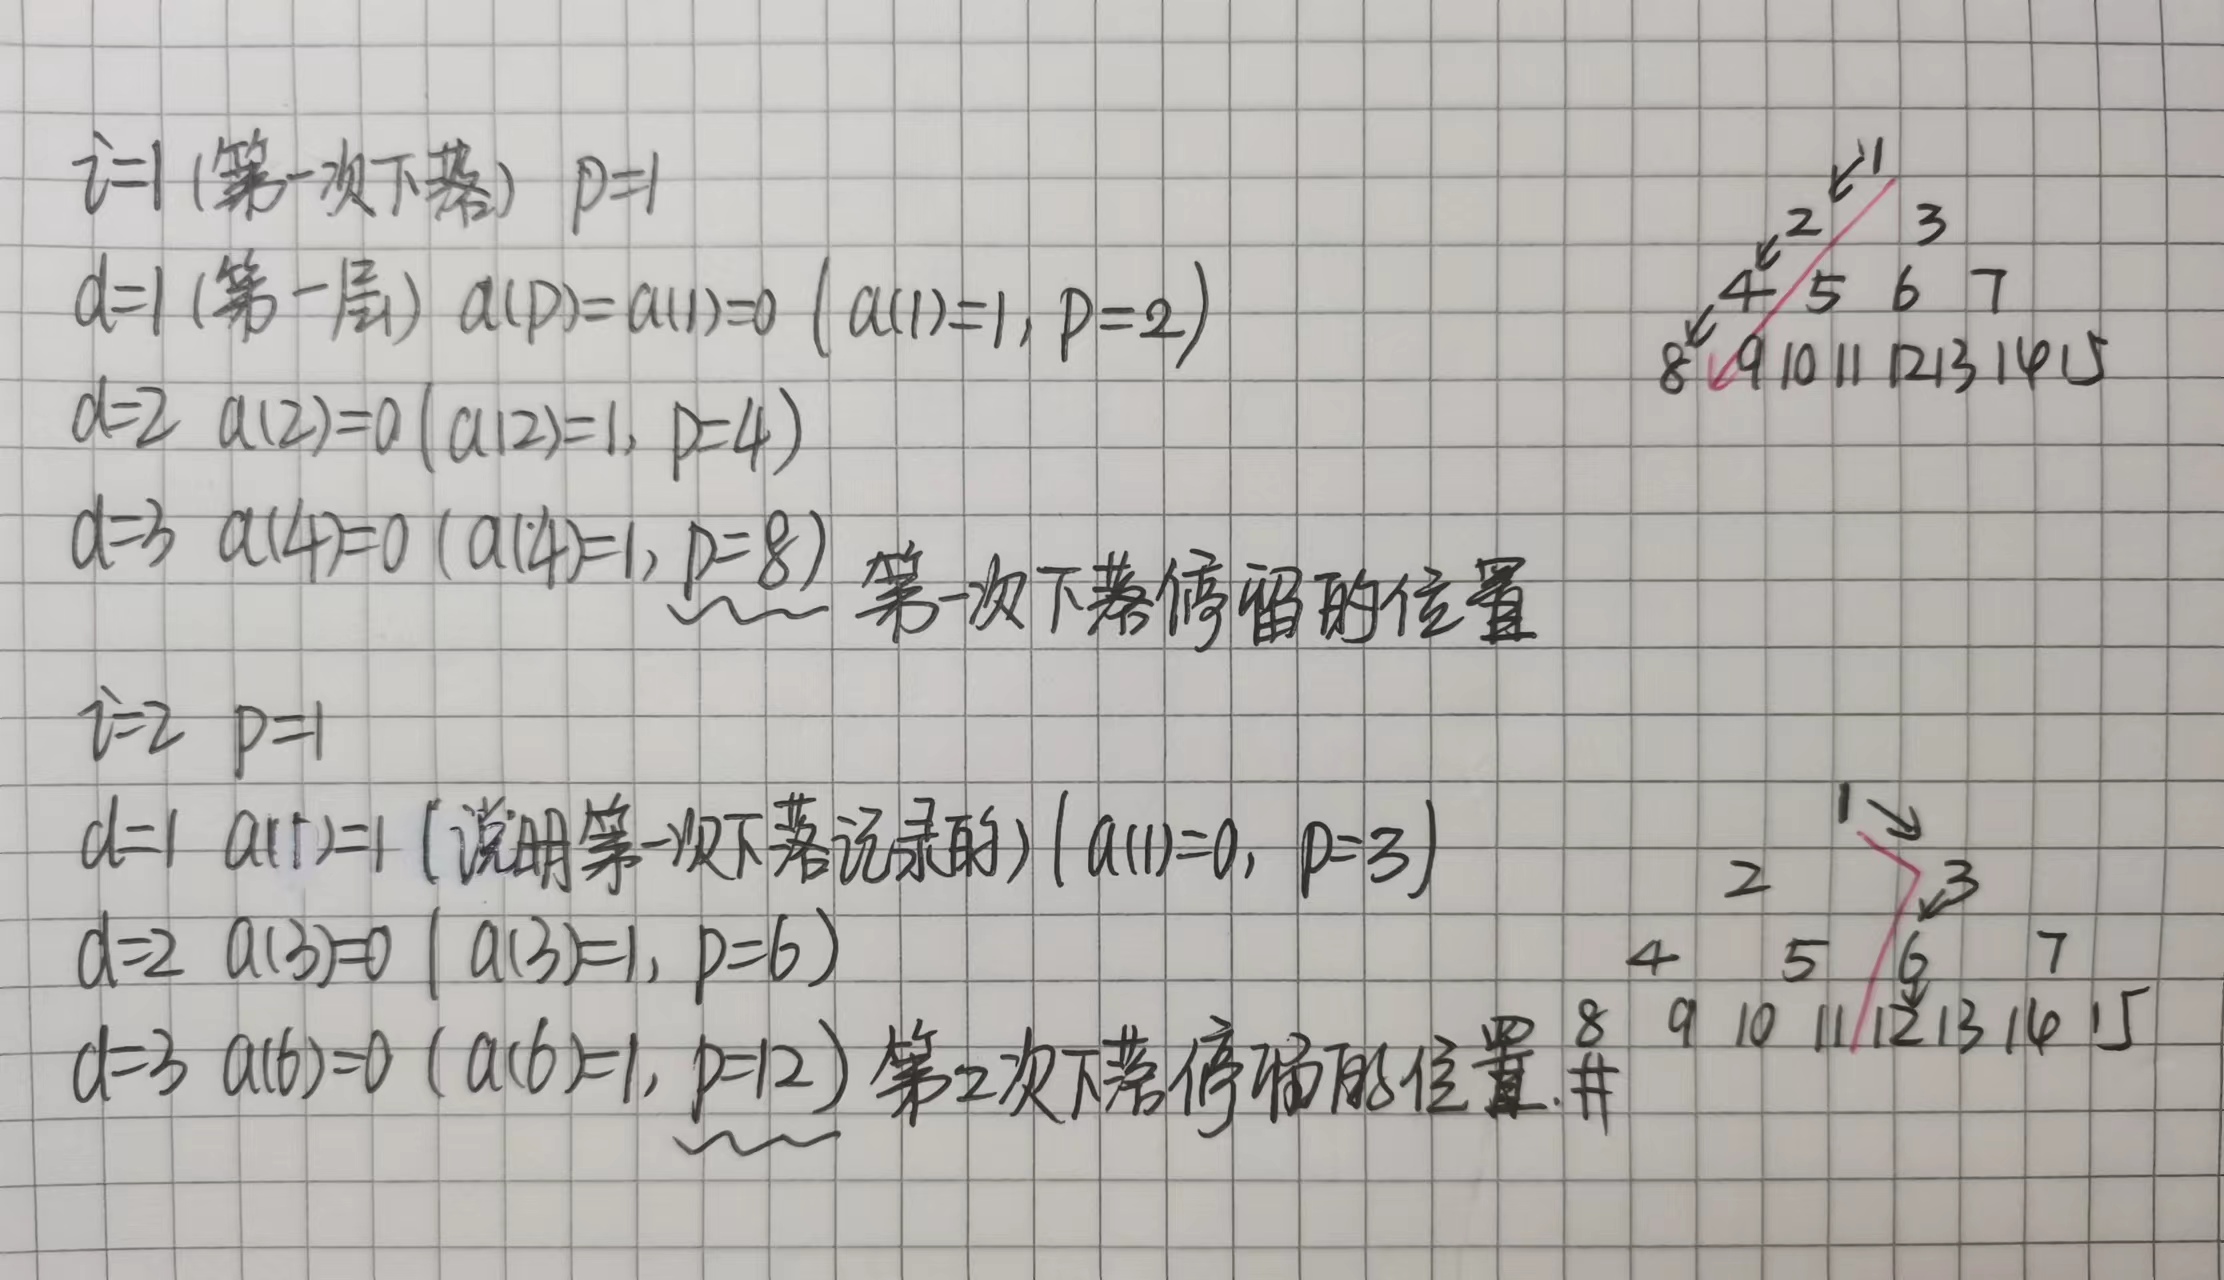 i=1 (第一次下落) p=1
d=1 (第一层) a(p)=a(1)=0 (a(1)=1, p=2)
d=2 a(2)=0 (a(2)=1, p=4)
d=3 a(4)=0 (a(4)=1, p=8) 第一次下落停留的位置
1
2 3
4 5 6 7
8 9 10 11 12 13 14 15
i=2 p=1
d=1 a(1)=1 (说明第一次下落记录的) (a(1)=0, p=3)
d=2 a(3)=0 (a(3)=1, p=6)
d=3 a(6)=0 (a(6)=1, p=12) 第2次下落停留的位置.#
1
2 3
4 5 6 7
8 9 10 11 12 13 14 15